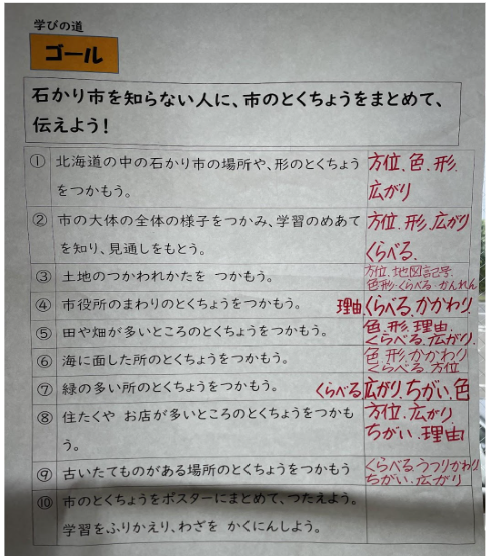 学びの道
ゴール
石かり市を知らない人に、市のとくちょうをまとめて、
伝えよう！
① 北海道の中の石かり市の場所や、形のとくちょう
をつかもう。
方位、色、形、
広がり
② 市の大体の全体の様子をつかみ、学習のめあて
を知り、見通しをもとう。
方位、形、広がり
くらべる、
③ 土地のつかわれかたを つかもう。
方位、地図記号、
色形・くらべる・かんれん
④ 市役所のまわりのとくちょうをつかもう。
理由、くらべる、かかわり
⑤ 田や畑が多いところのとくちょうをつかもう。
色、形、理由、
くらべる、広がり、
⑥ 海に面した所のとくちょうをつかもう。
色、形、かかわり
くらべる、方位
⑦ 緑の多い所のとくちょうをつかもう。
くらべる、広がり、ちがい、色
⑧ 住たくや お店が多いところのとくちょうをつかも
う。
方位、広がり、
ちがい、理由
⑨ 古いたてものがある場所のとくちょうをつかもう
くらべる、うつりかわり
ちがい、広がり
⑩ 市のとくちょうをポスターにまとめて、つたえよう。
学習をふりかえり、わざを かくにんしよう。